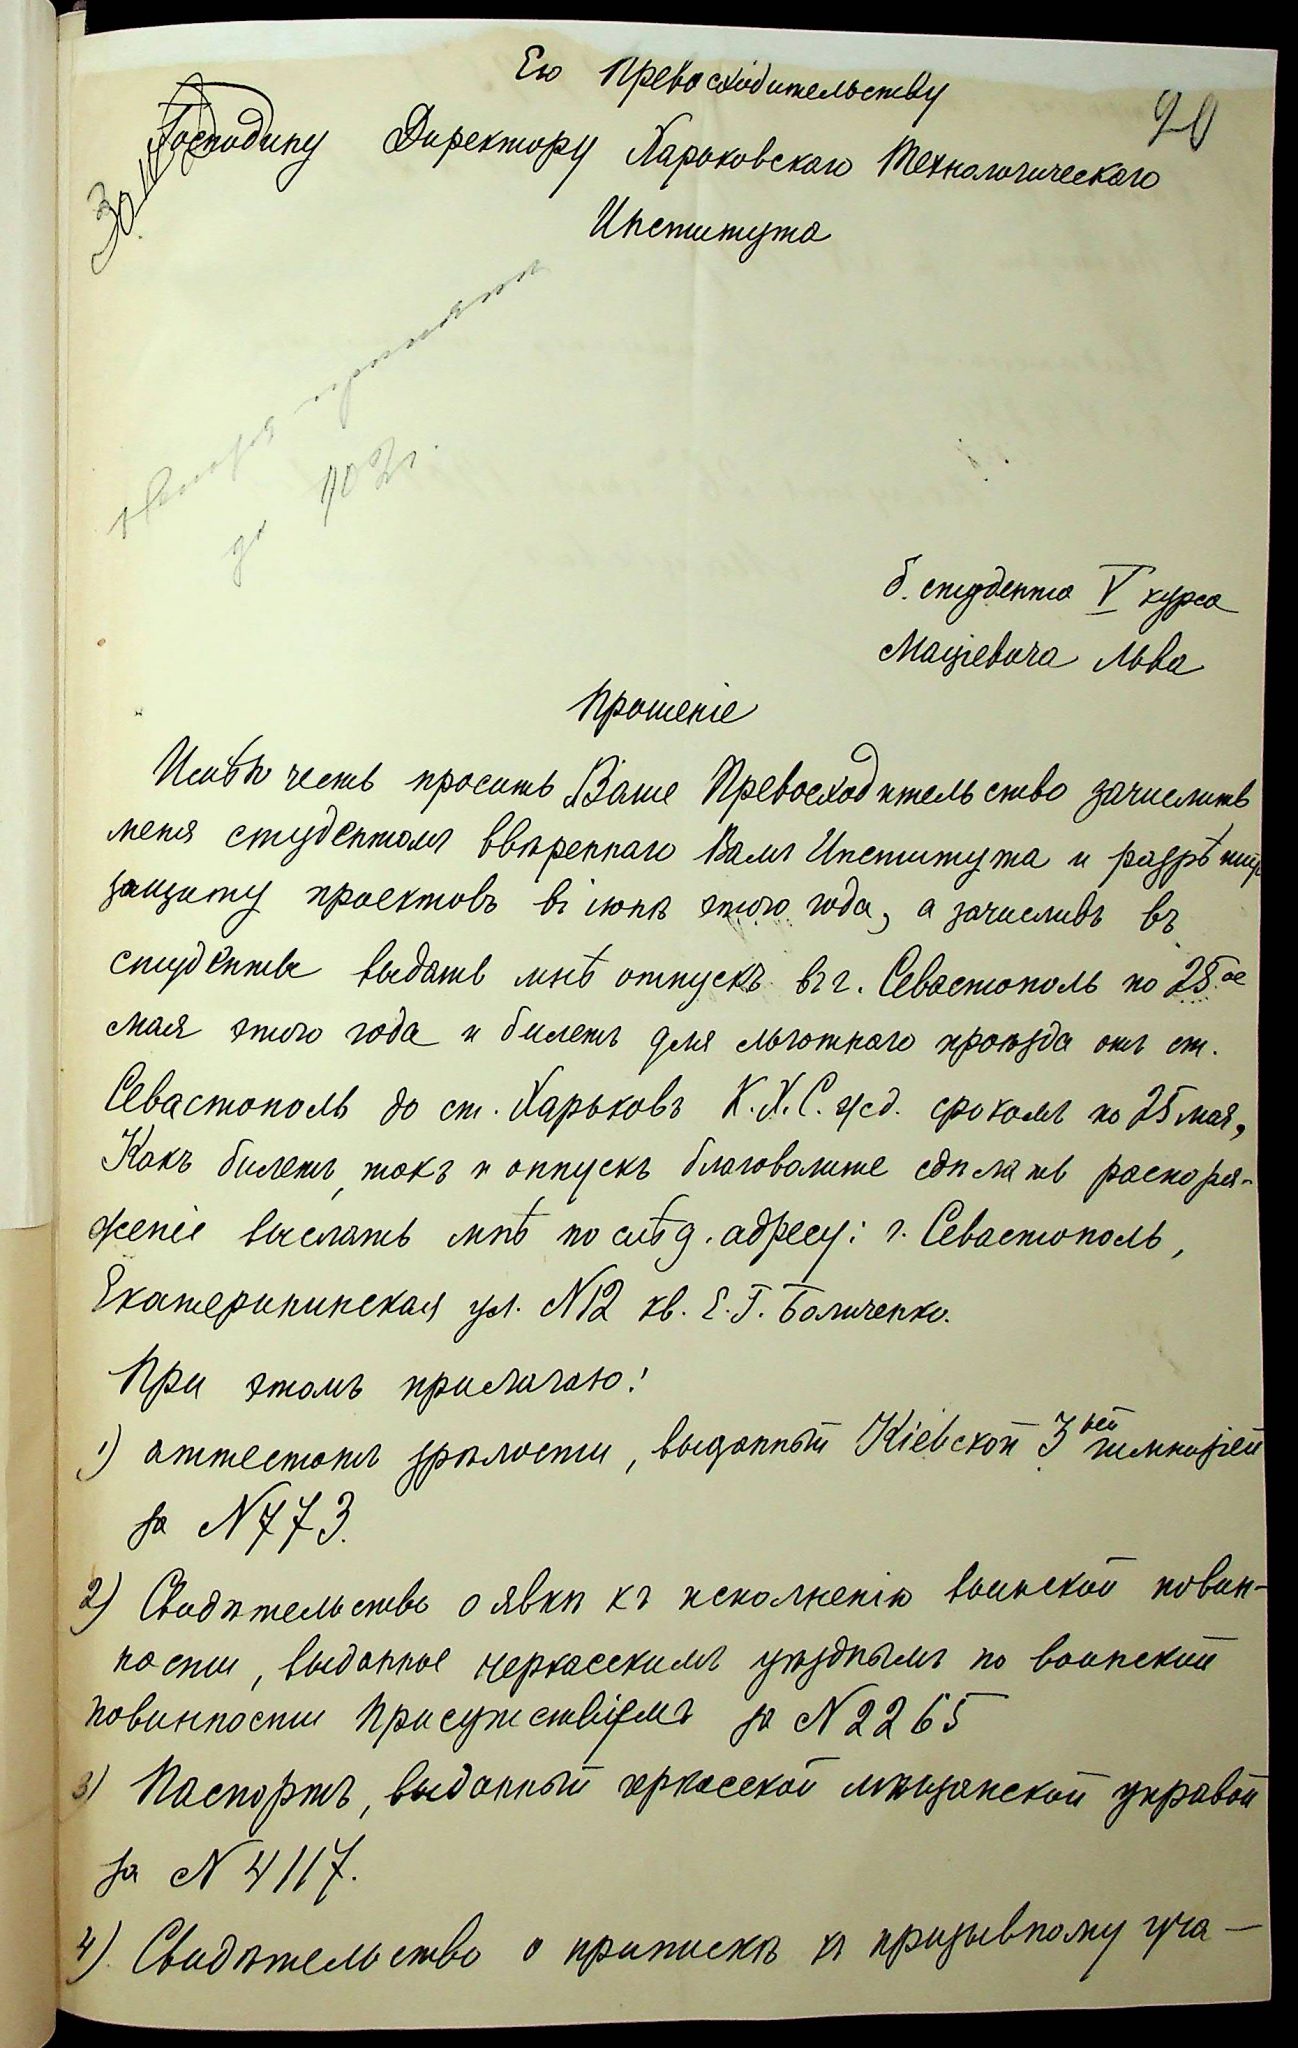 Его Превосходительству
20
Господину Директору Харьковскаго Технологическаго
Института
до 902 г.
б. студента V курса
Мацiевича Льва
Прошенiе
Имѣю честь просить Ваше Превосходительство зачислить
меня студентомъ ввѣреннаго Вамъ Института и разрѣшить
защиту проектовъ въ iюнѣ этого года, а зачисливъ въ
студенты выдать мнѣ отпускъ въ г. Севастополь по 25ое
мая этого года и билетъ для льготнаго проѣзда отъ ст.
Севастополь до ст. Харьковъ К.Х.С. ж.д. срокомъ по 25 мая,
Какъ билетъ, такъ и отпускъ благоволите сдѣлать распоря-
женiе выслать мнѣ по слѣд. адресу: г. Севастополь,
Екатерининская ул. N12 кв. Е. Г. Боличенко.
При этомъ прилагаю:
1) аттестатъ зрѣлости, выданный Кiевской 3ей гимназiей
за N 773.
2) Свидѣтельство о явкѣ къ исполненiю воинской повин-
ности, выданное черкасскимъ уѣзднымъ по воинской
повинности Присутствiемъ за N 2265
3) Паспортъ, выданный черкасской мѣщанской управой
за N 4117.
4) Свидѣтельство о припискѣ къ призывному уча-